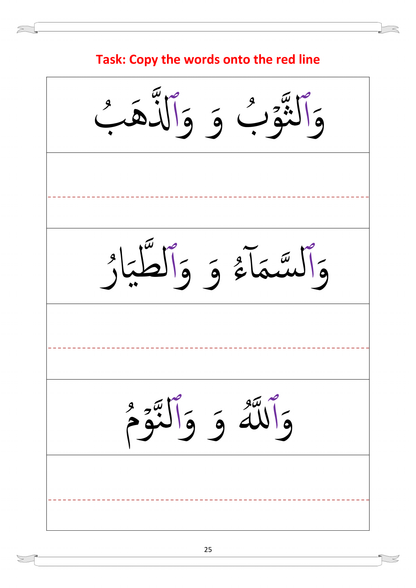 Task: Copy the words onto the red line
وَٱلثَّوْبُ وَ وَٱلذَّهَبُ
وَٱلسَّمَآءُ وَ وَٱلطَّيَارُ
وَٱللَّهُ وَ وَٱلنَّوْمُ
25